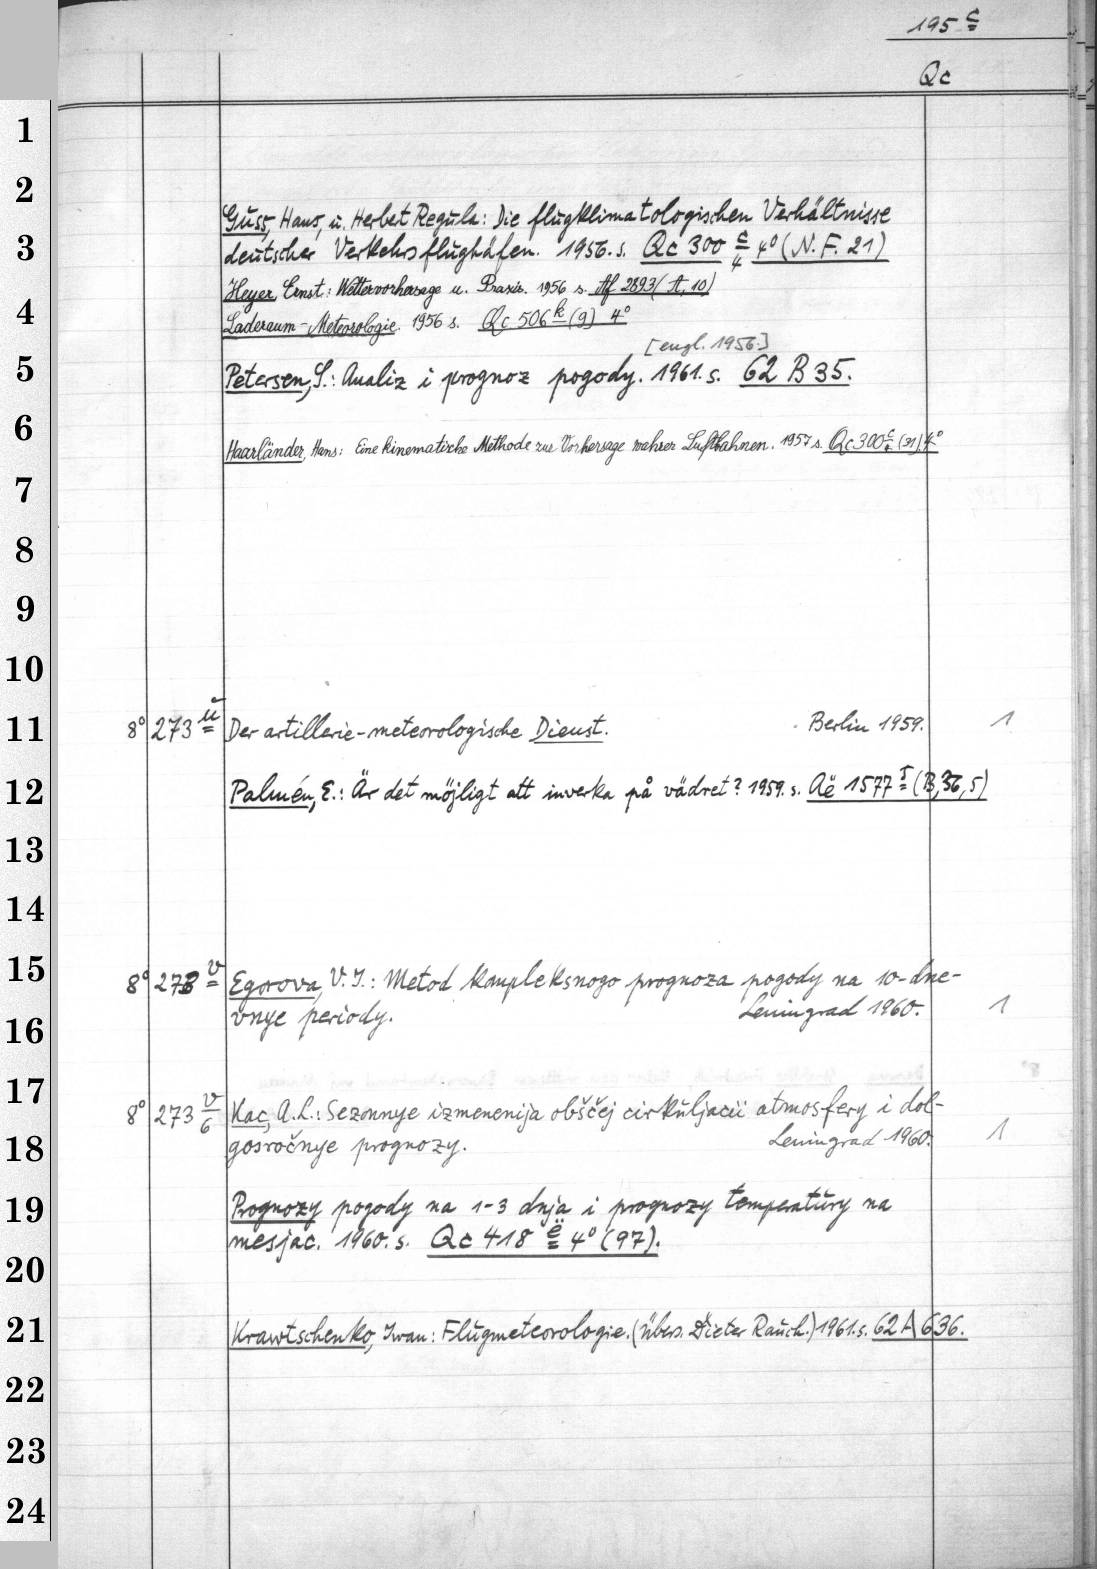 195 c
Qc
1
2
Guss, Hans, u. Herbert Regula: Die flugklimatologischen Verhältnisse
3 deutscher Verkehrsflughäfen. 1956. s. Qc 300 c/4 4° (N. F. 21)
Heyer, Ernst: Wettervorhersage u. Praxis. 1956 s. Af 2893 (A, 10)
4 Laderaum-Meteorologie. 1956 s. Qc 506 k (9) 4°
[engl. 1956.]
5 Petersen, S.: Analiz i prognoz pogody. 1961. s. 62 B 35.
6 Haarländer, Hans: Eine kinematische Methode zur Vorhersage wahrer Luftbahnen. 1957 s. Qc 300 c/4 (31) 4°
7
8
9
10
11 8° 273 u Der artillerie-meteorologische Dienst. Berlin 1959. 1
12 Palmén, E.: Är det möjligt att inverka på vädret? 1959. s. Aë 1577 (B, 36, 5)
13
14
15 8° 273 v Egorova, V. I.: Metod kompleksnogo prognoza pogody na 10-dne-
16 vnye periody. Leningrad 1960. 1
17 8° 273 v/6 Kac, A. L.: Sezonnye izmenenija obščej cirkuljacii atmosfery i dol-
18 gosročnye prognozy. Leningrad 1960. 1
19 Prognozy pogody na 1-3 dnja i prognozy temperatury na
mesjac. 1960. s. Qc 418 ë 4° (97).
20
21 Krawtschenko, Iwan: Flugmeteorologie. (Übers. Dieter Rauch.) 1961. s. 62 A 636.
22
23
24